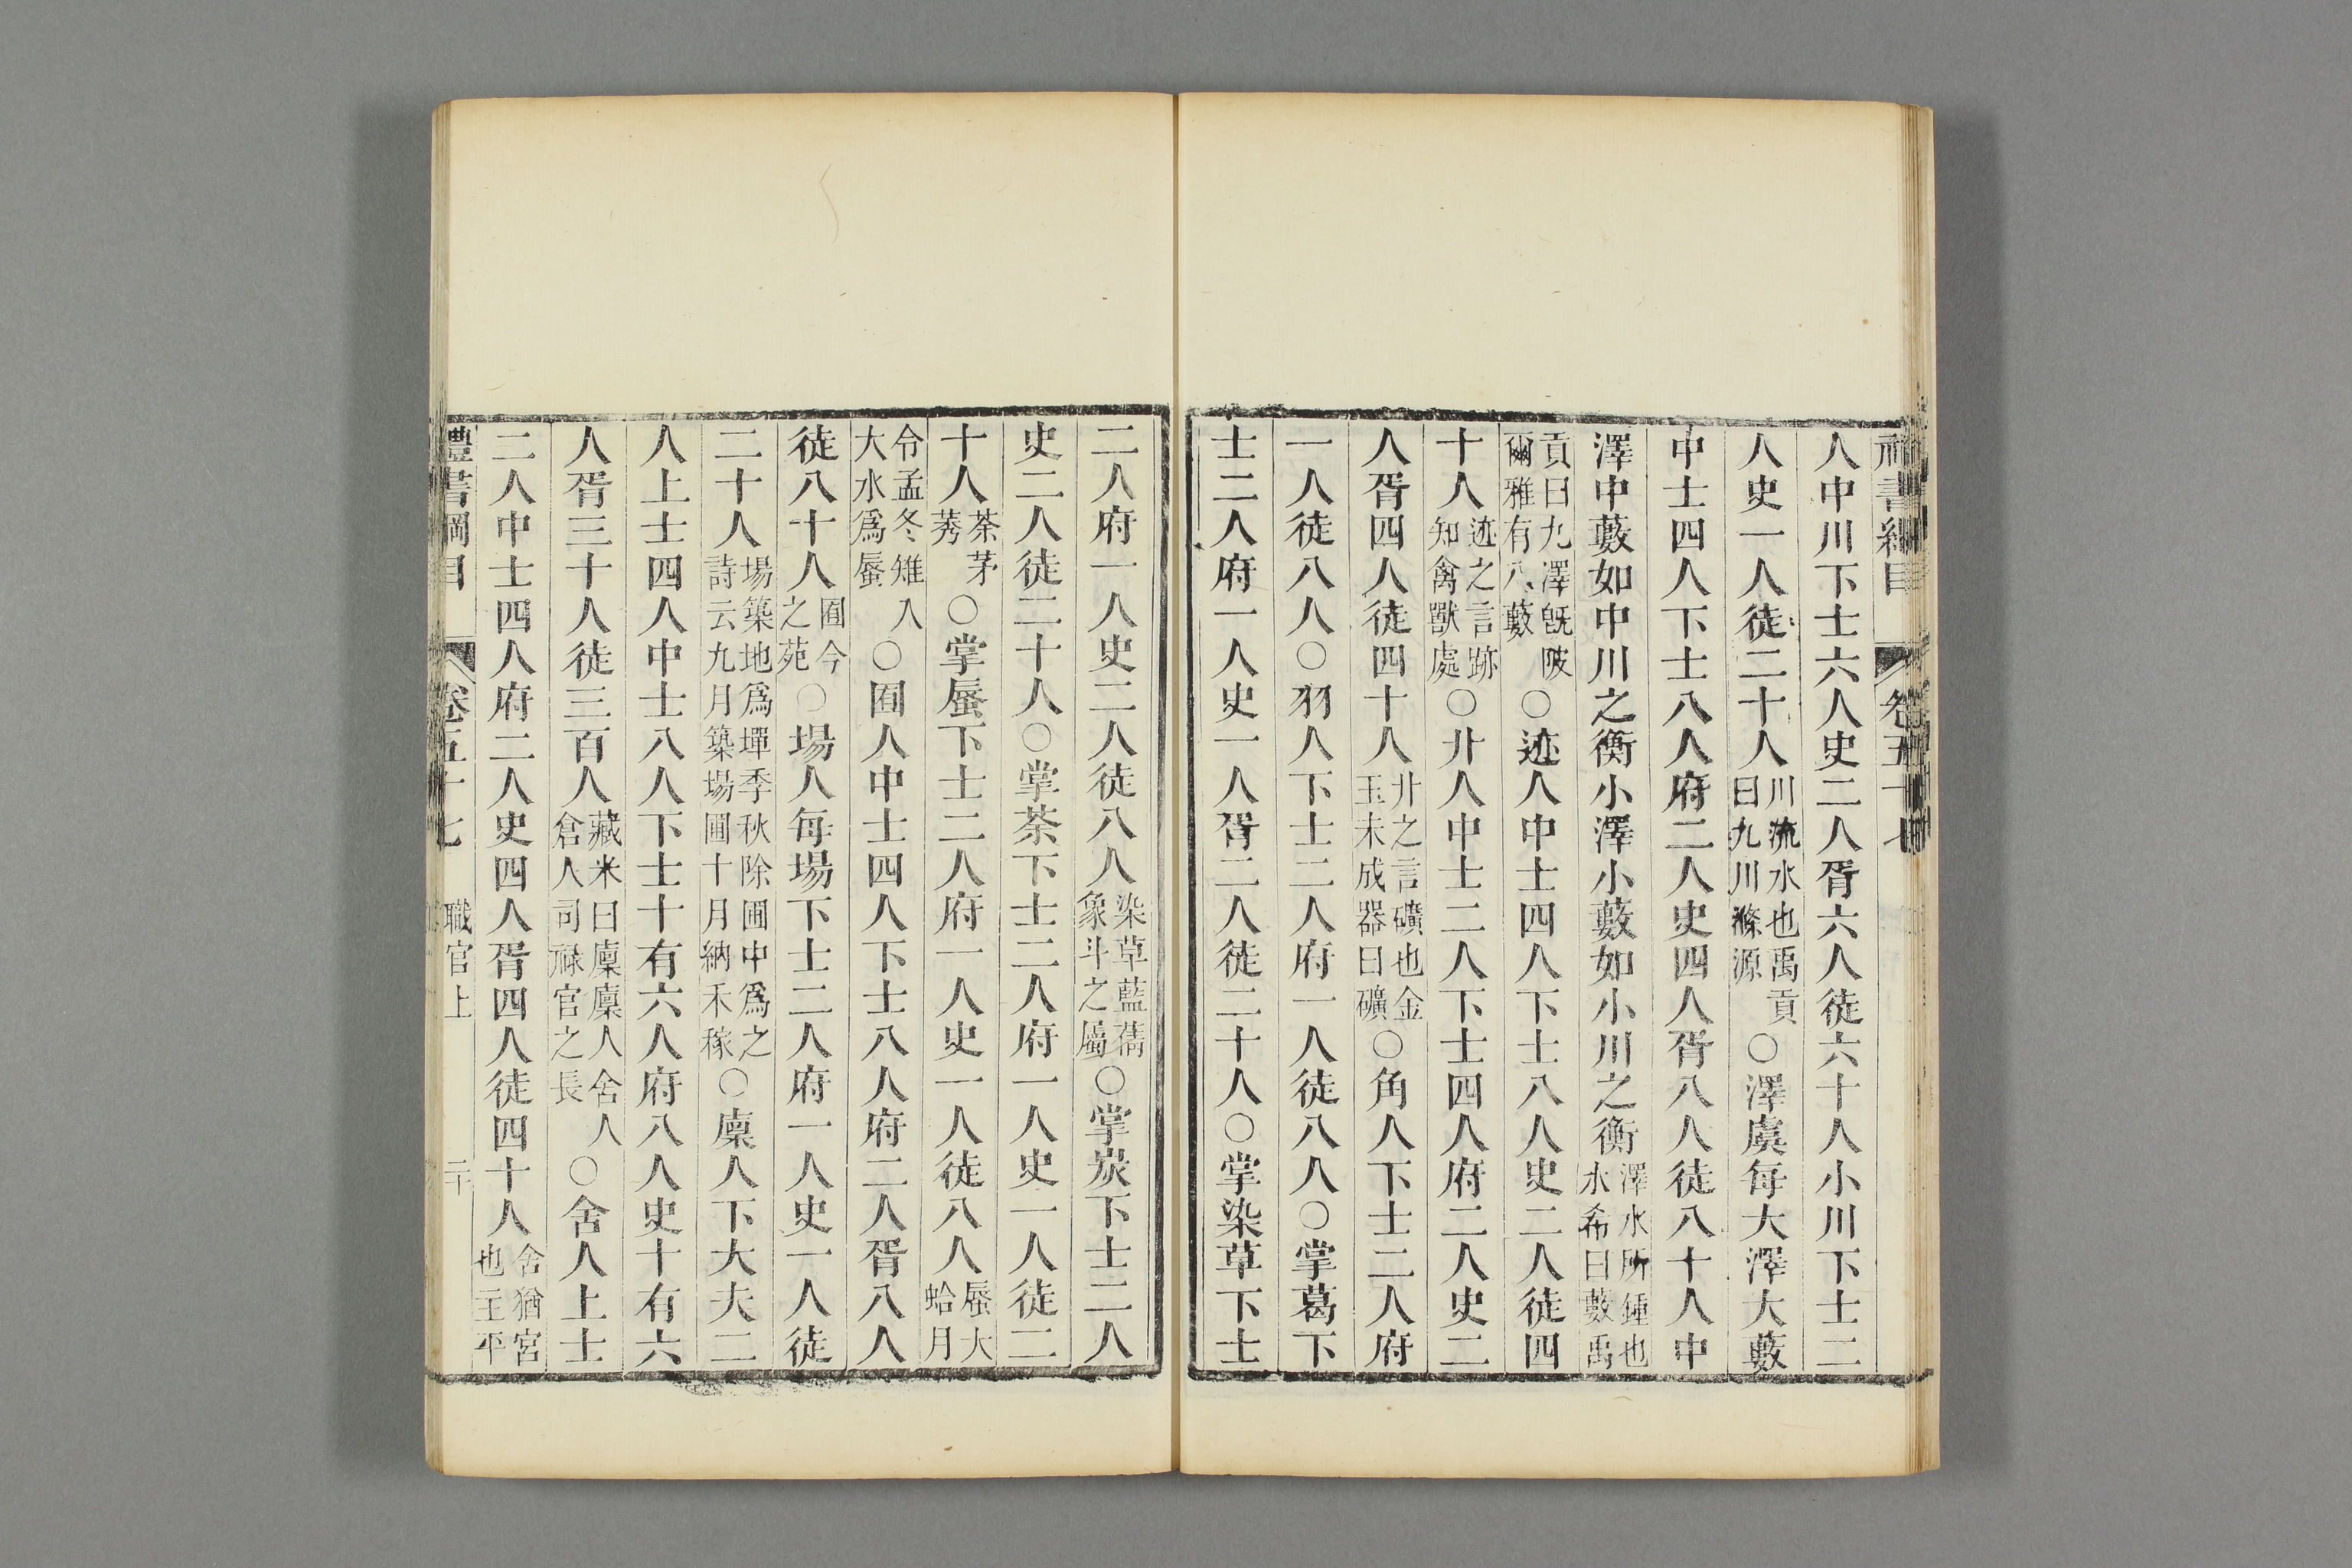 禮書綱目 卷五十七
人中川下士六人史二人胥六人徒六十人小川下士二
人史一人徒二十人川流水也禹貢曰九川滌源○澤虞每大澤大藪
中士四人下士八人府二人史四人胥八人徒八十人中
澤中藪如中川之衡小澤小藪如小川之衡澤水所鍾也水希曰藪禹
貢曰九澤旣陂爾雅有八藪○迹人中士四人下士八人史二人徒四
十人迹之言跡知禽獸處○丱人中士二人下士四人府二人史二
人胥四人徒四十人丱之言礦也金玉未成器曰礦○角人下士二人府
一人徒八人○羽人下士二人府一人徒八人○掌葛下
士二人府一人史一人胥二人徒二十人○掌染草下士
二人府一人史二人徒八人染草藍蒨象斗之屬○掌炭下士二人
史二人徒二十人○掌荼下士二人府一人史一人徒二
十人荼茅莠○掌蜃下士二人府一人史一人徒八人蜃大蛤月
令孟冬雉入大水爲蜃○囿人中士四人下士八人府二人胥八人
徒八十人囿今之苑○場人每場下士二人府一人史一人徒
二十人場築地爲墠季秋除圃中爲之詩云九月築場圃十月納禾稼○廩人下大夫二
人上士四人中士八人下士十有六人府八人史十有六
人胥三十人徒三百人藏米曰廩廩人舍人倉人司祿官之長○舍人上士
二人中士四人府二人史四人胥四人徒四十人舍猶宮也主平
禮書綱目 卷五十七 職官上 二十